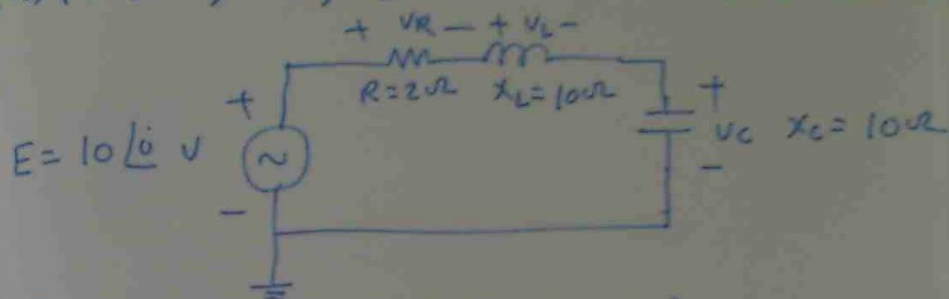 + VR — + VL -
R=2Ω XL=10Ω
+
E= 10∠0° V
-
+
VC XC= 10Ω
-